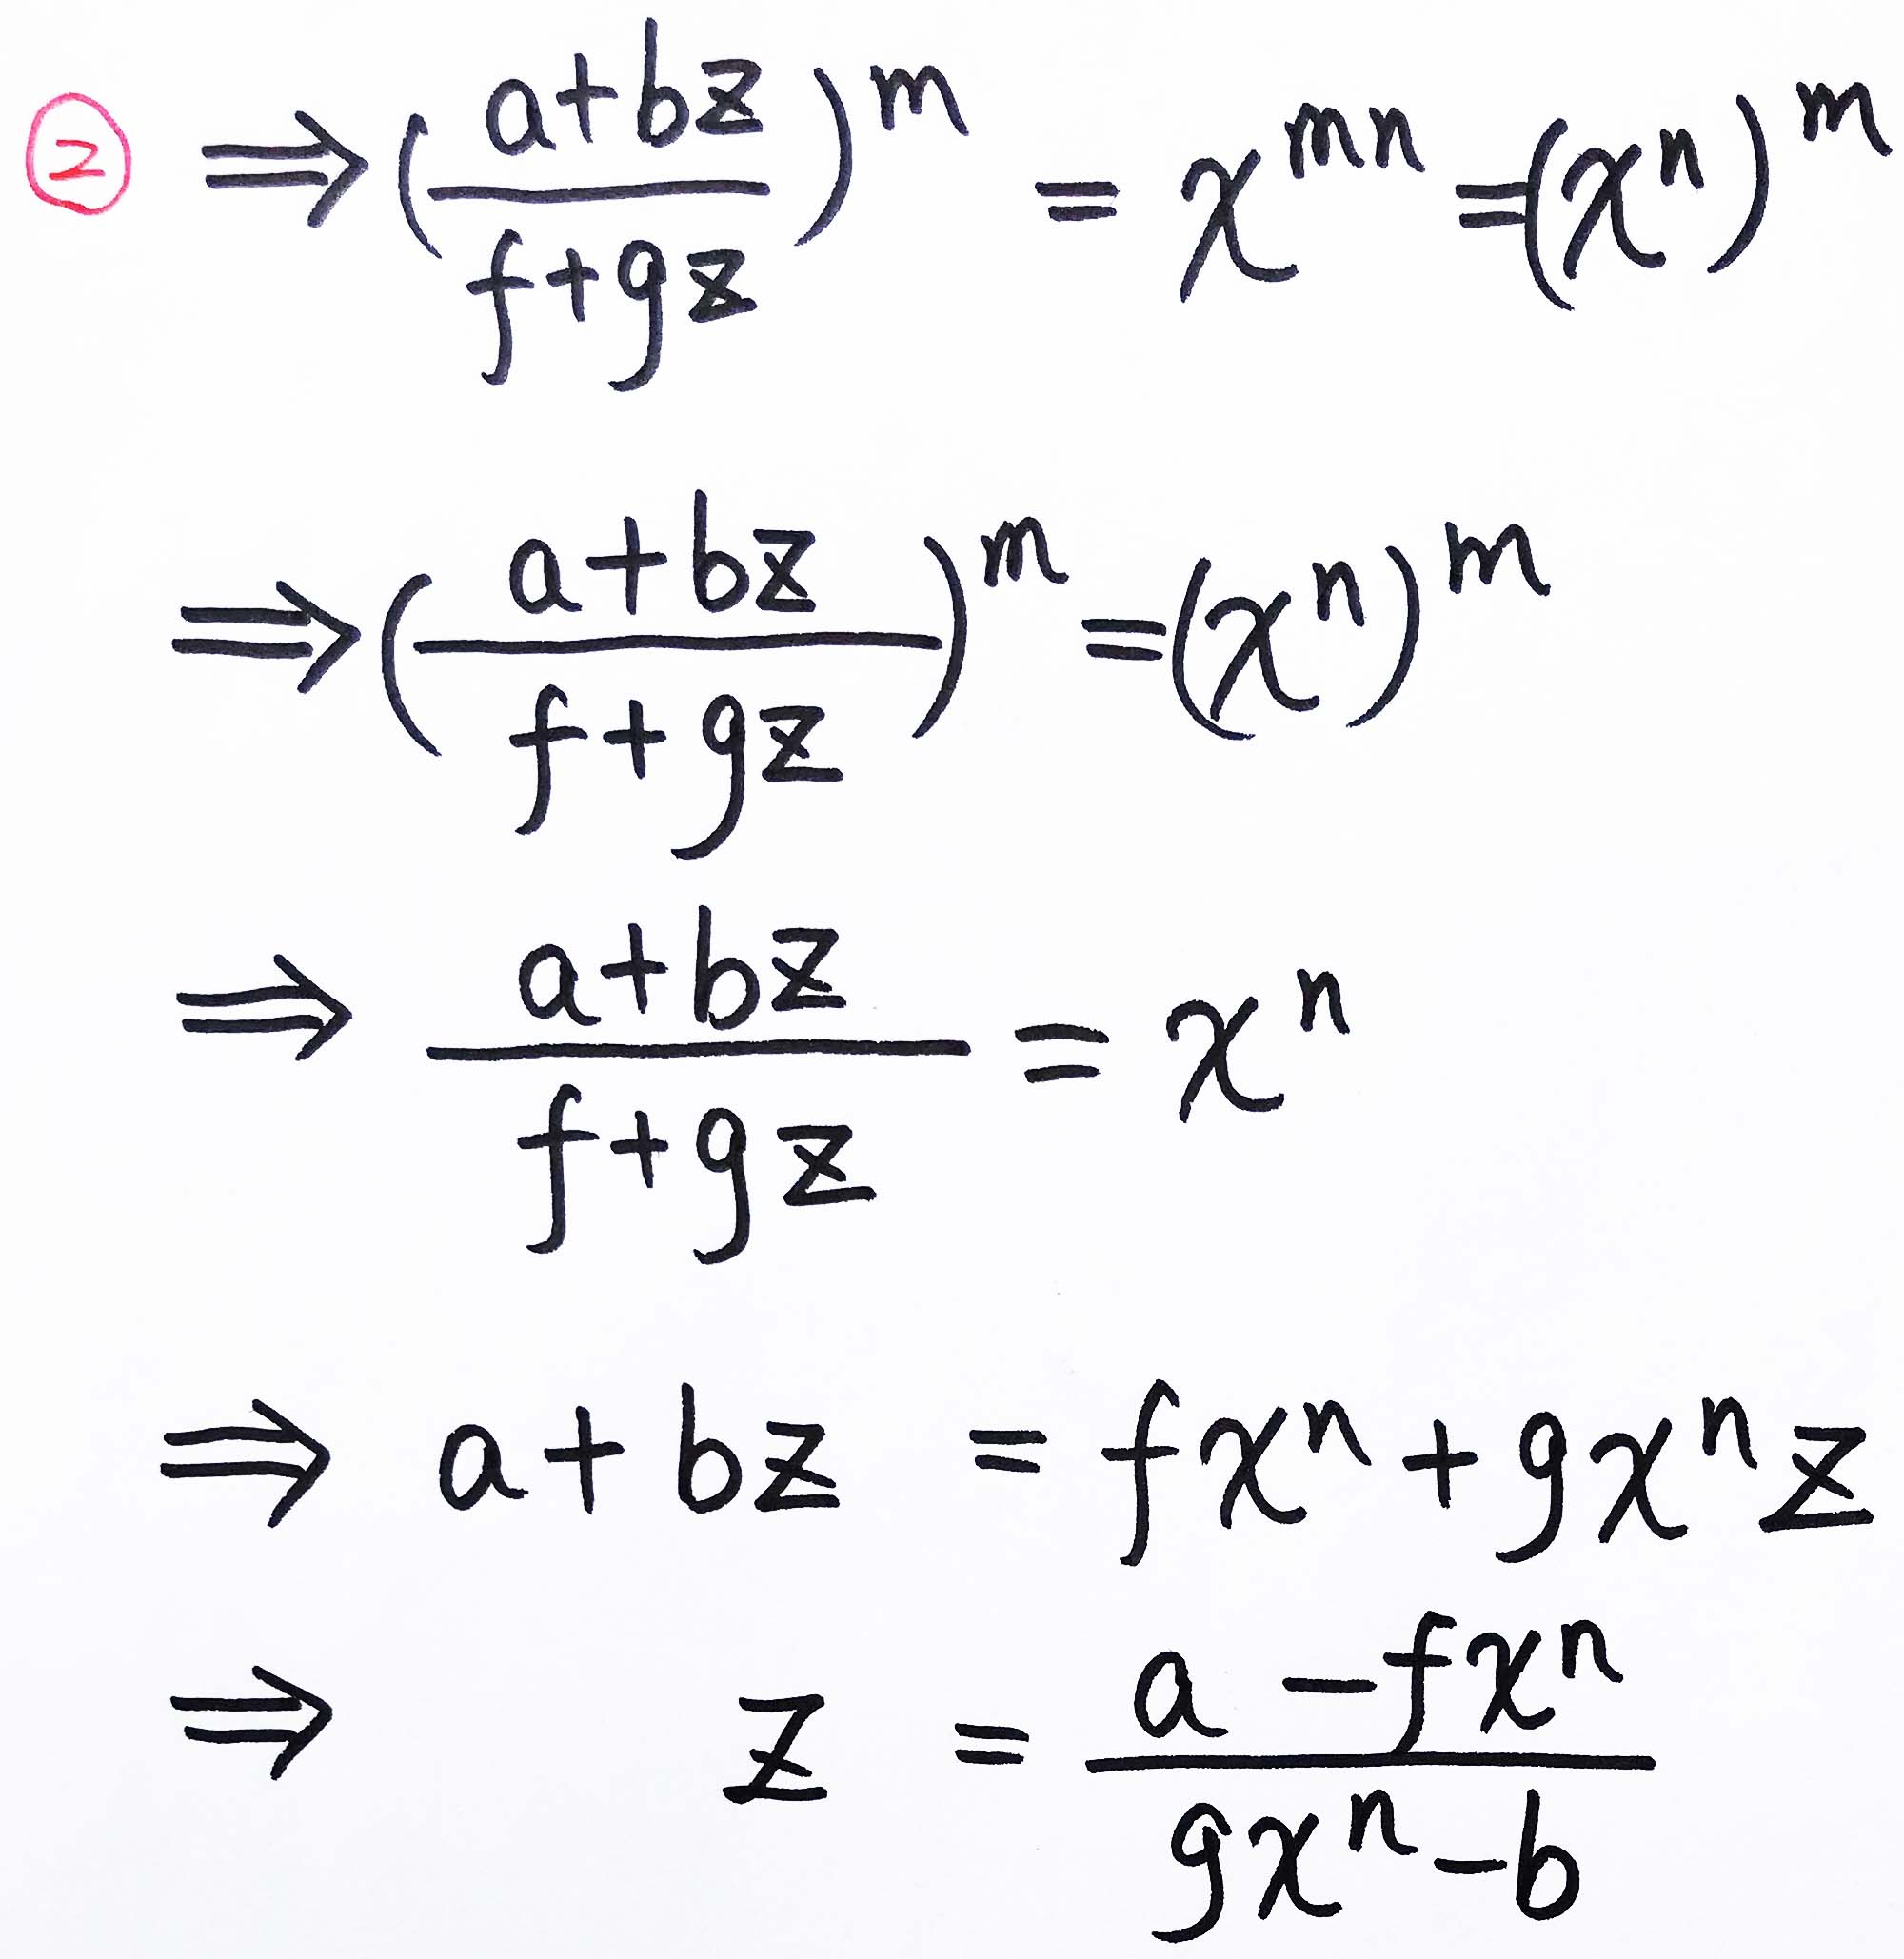 ② ⇒ ((a+bz)/(f+gz))^m = x^{mn} = (x^n)^m
⇒ ((a+bz)/(f+gz))^m = (x^n)^m
⇒ (a+bz)/(f+gz) = x^n
⇒ a+bz = fx^n + gx^n z
⇒ z = (a-fx^n)/(gx^n-b)